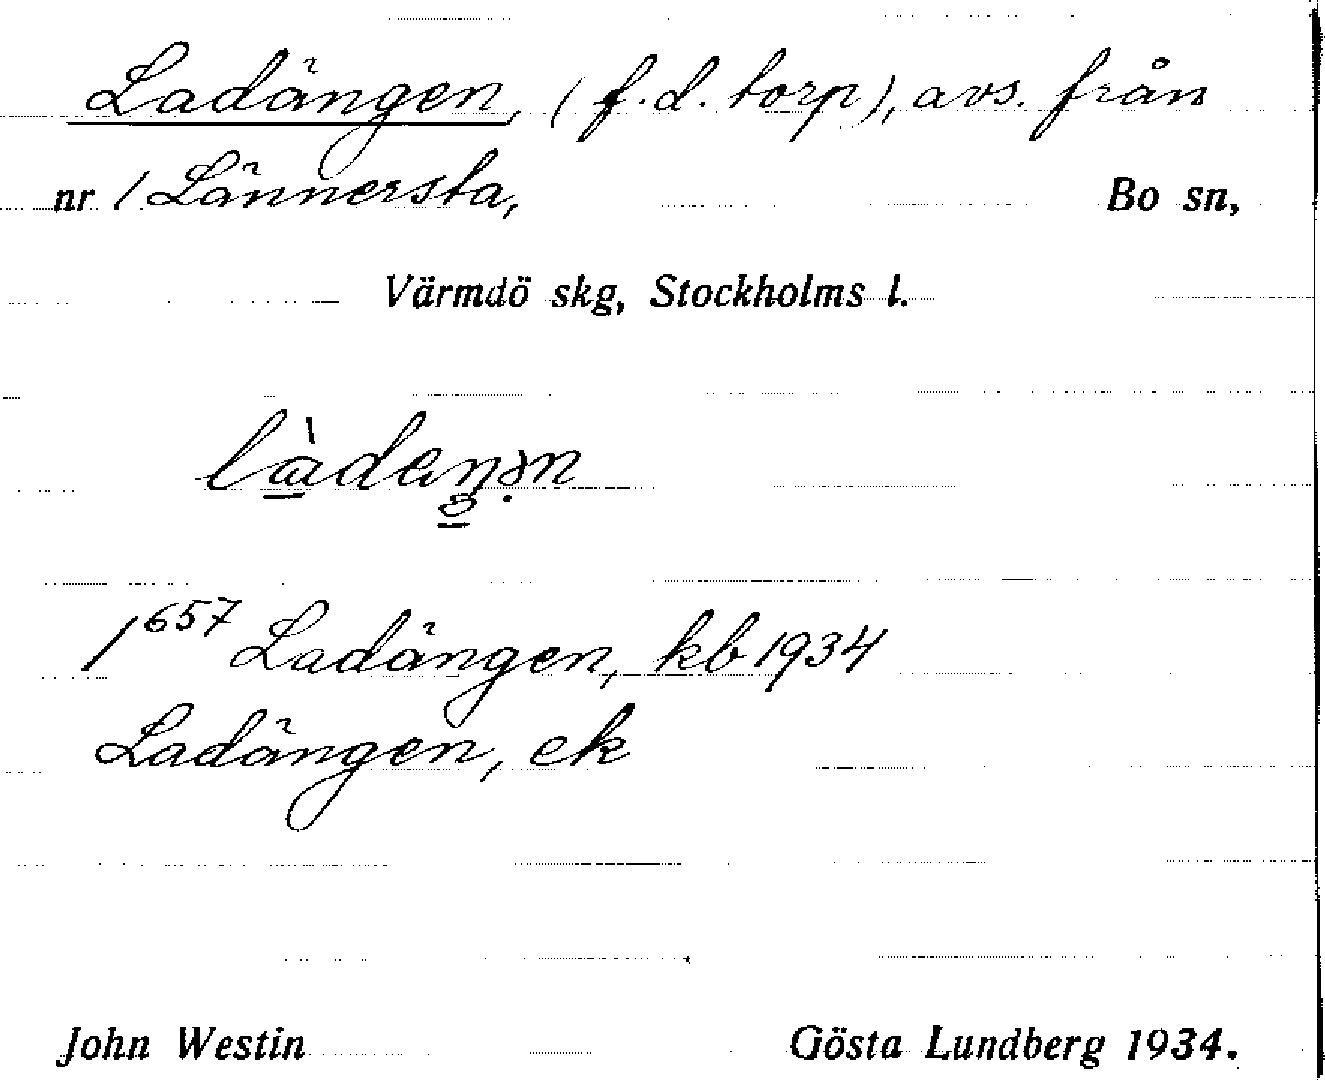 Ladängen, (f.d. torp), avs. från
nr 1 Lännersta, Bo sn,
Värmdö skg, Stockholms l.
1657 Ladängen, kb 1934
Ladängen, ek
John Westin Gösta Lundberg 1934.